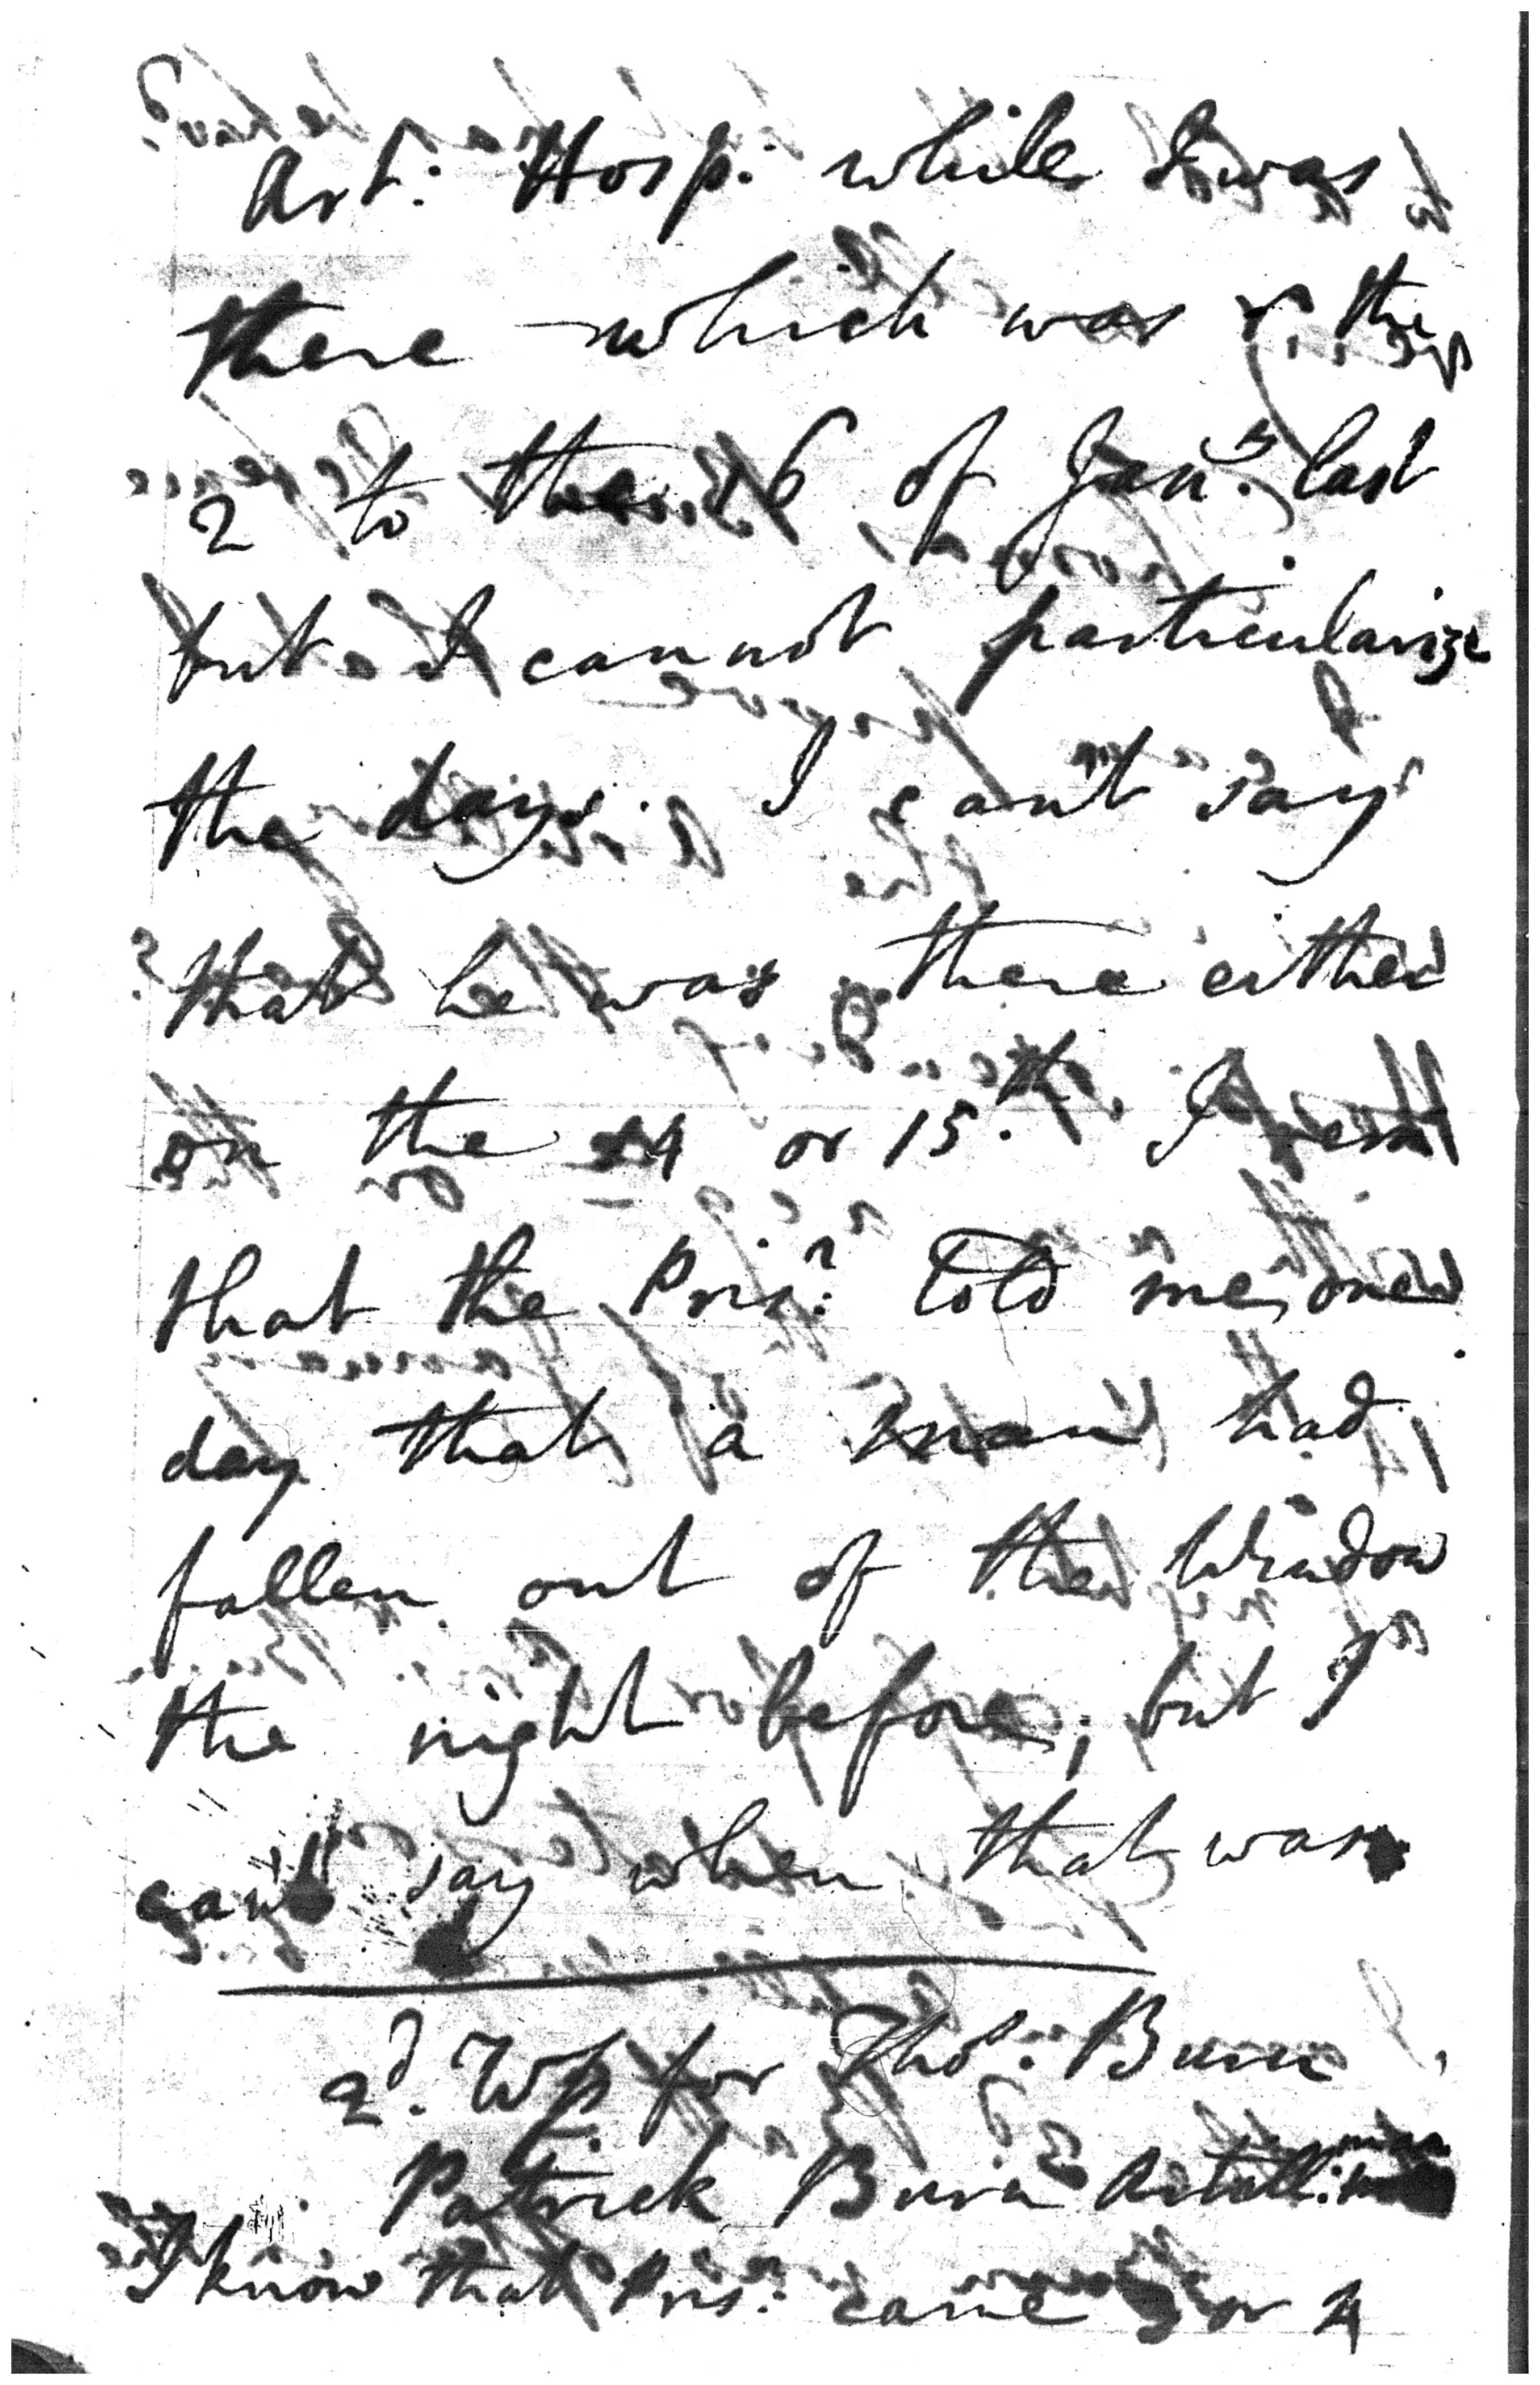 Art: Hosp. while I was
there which was fr the
2 to the 26 of Jany. last
but I cannot particularize
the days. I can't say
that he was there either
on the 14 or 15.th I
that the Prisr. told me, one
day that a man had
fallen out of the Window
the night before; but I
can't say when that was
2d. Wts. for Thos. Burn
Patrick Burn Artill: man
I know that Prisr. came 3 or 4